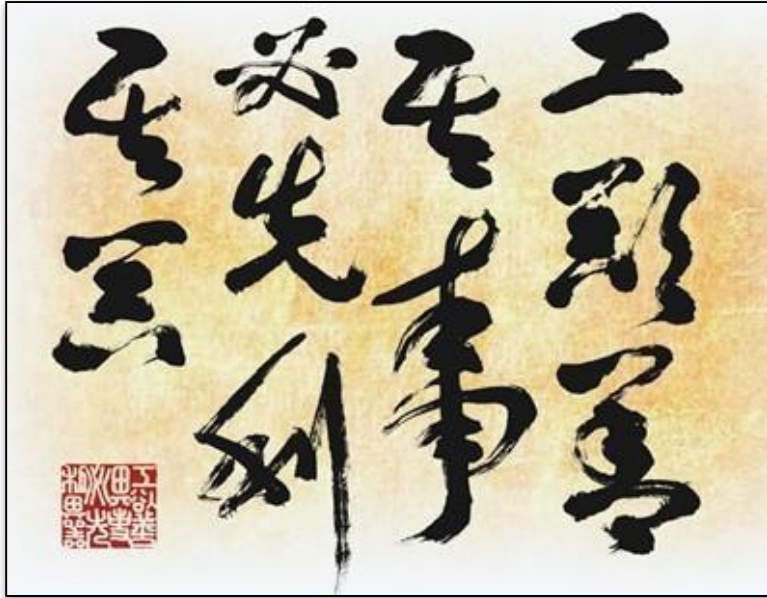 工欲善
其事
必先利
其器
工欲善其事必先利其器